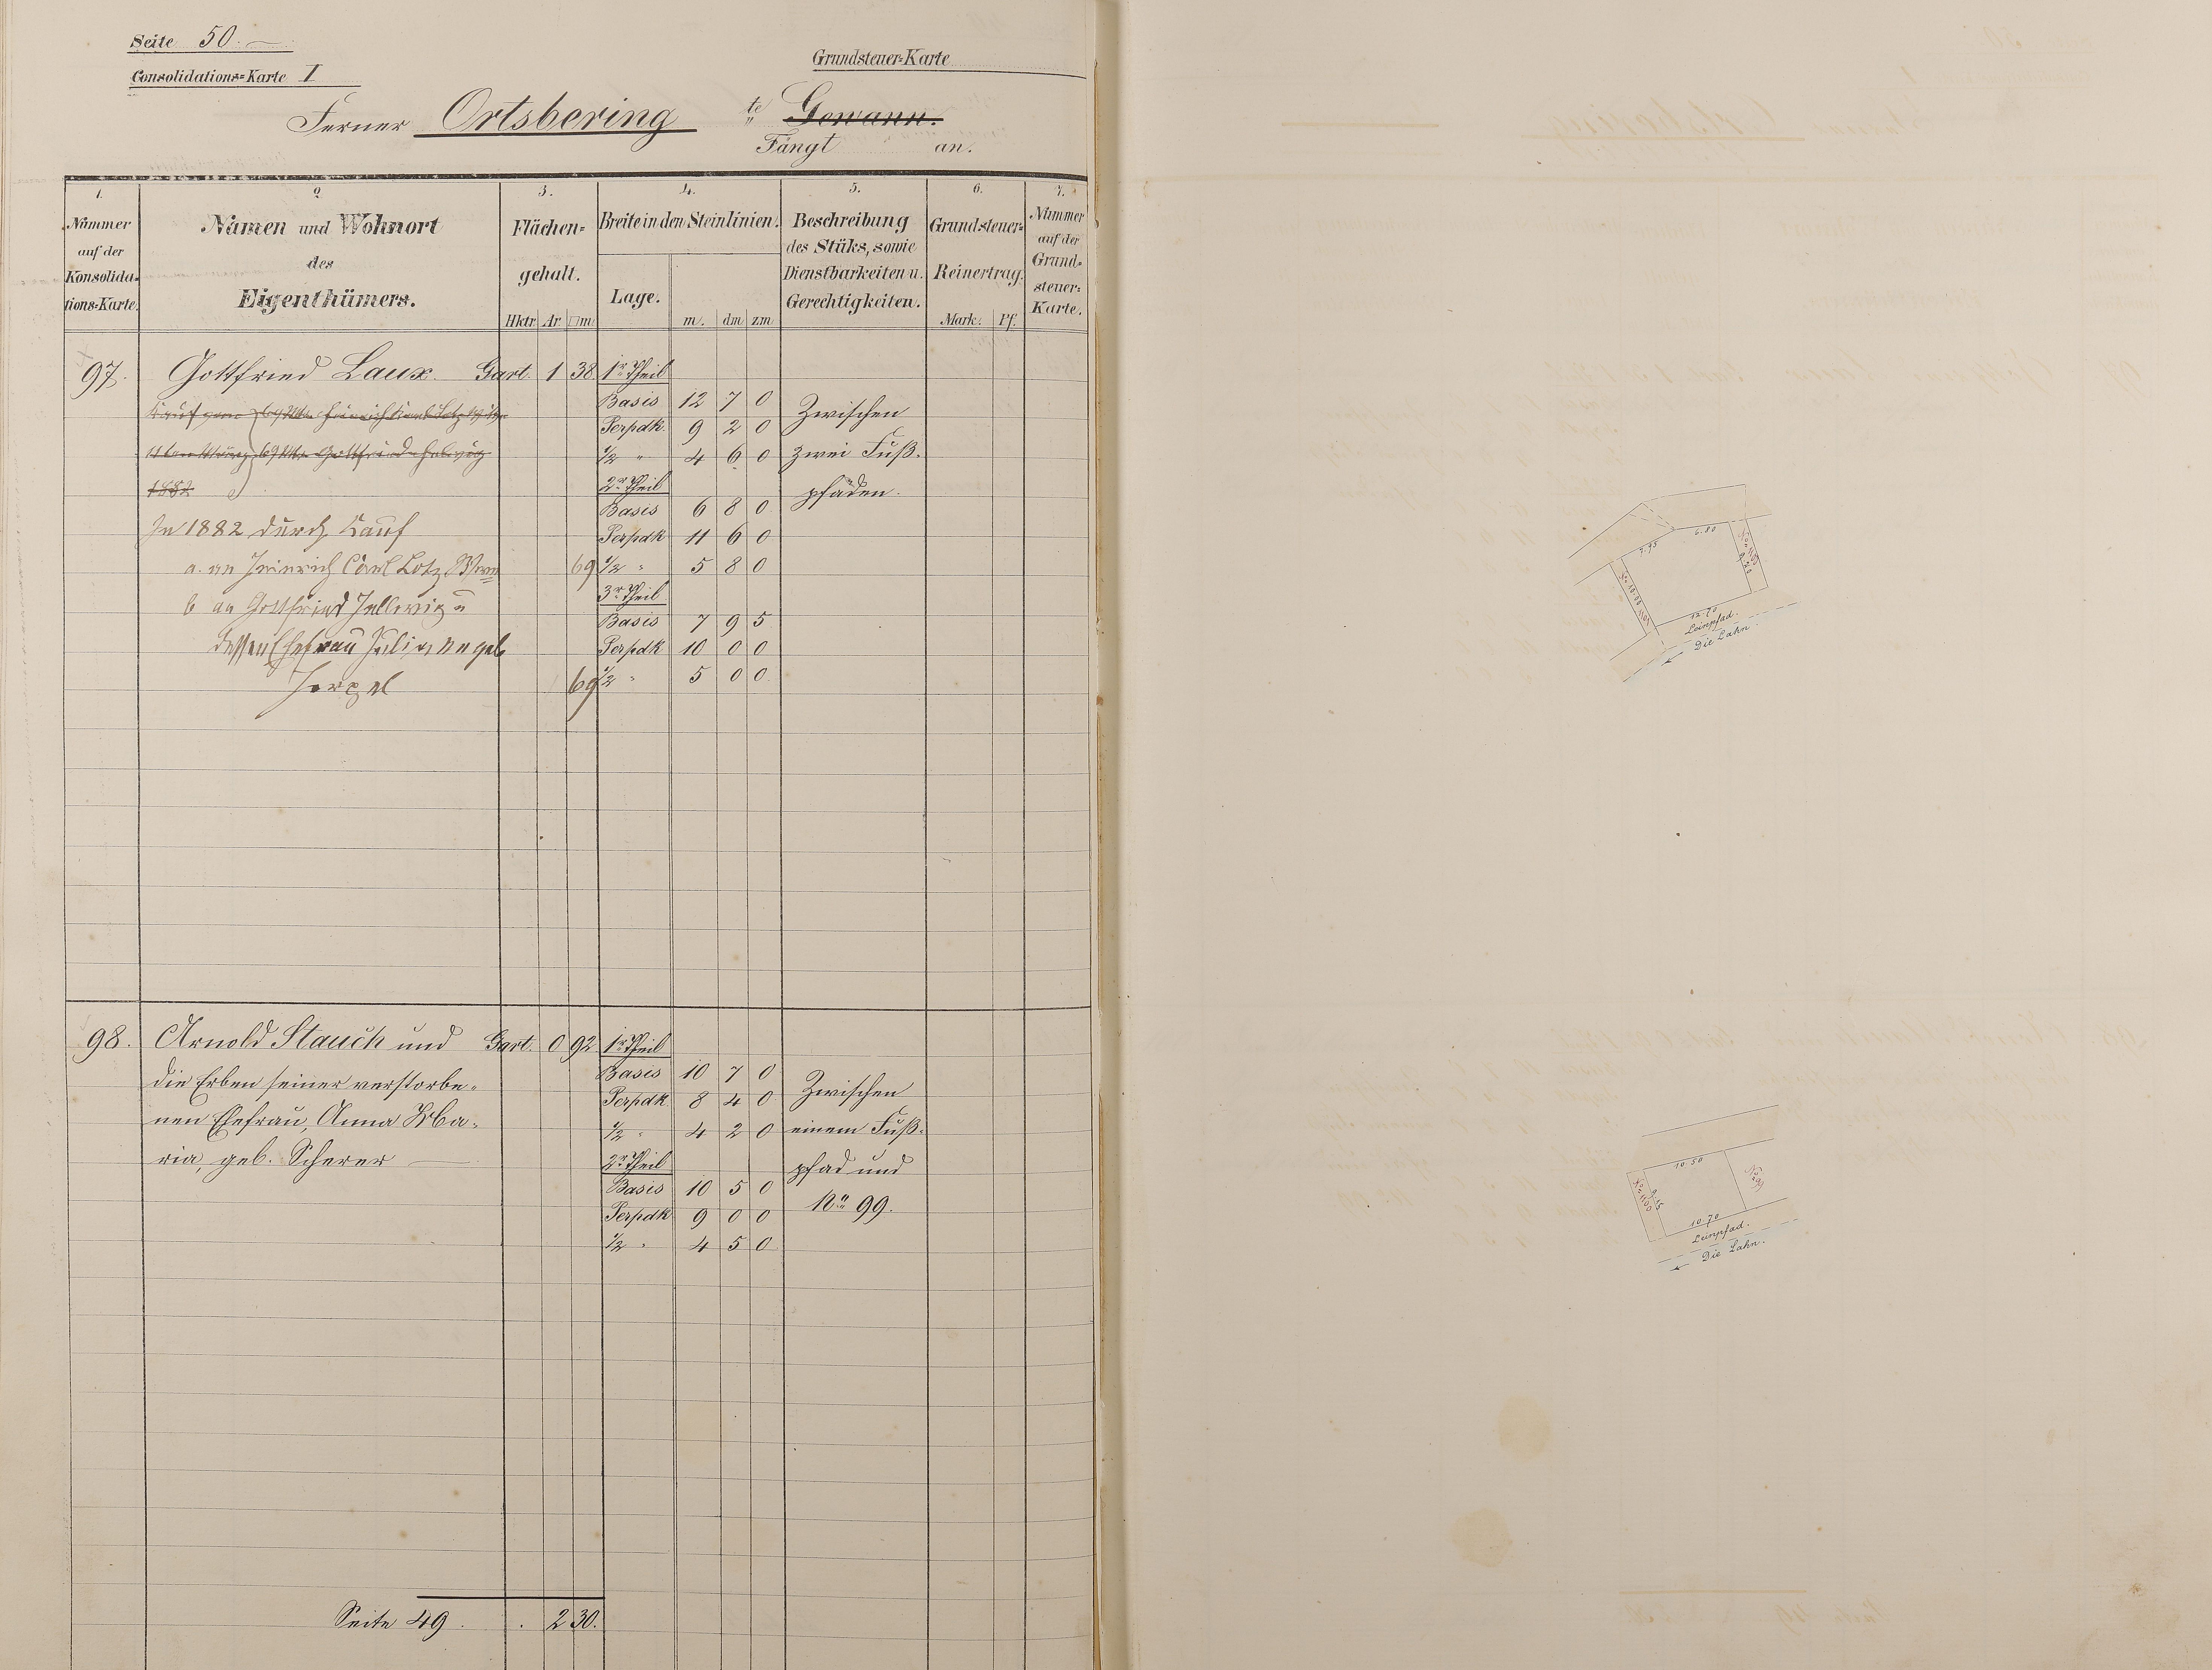 Seite 50.
Consolidations=Karte I
Grundsteuer=Karte
Ferner Ortsbering te Gewann.
Fängt an.
1. 2 3. 4. 5. 6. 7.
Nummer auf der Konsolida=tions=Karte.
Namen und Wohnort
des
Eigenthümers.
Flächen=
gehalt.
Hktr. Ar □m
Breite in den Steinlinien.
Lage. m. dm zm
Beschreibung
des Stüks, sowie
Dienstbarkeiten u.
Gerechtigkeiten.
Grundsteuer=
Reinertrag.
Mark. Pf.
Nummer
auf der
Grund=
steuer=
Karte.
97. Gottfried Laux. Gart. 1 38 1r Theil
Basis 12 7 0 Zwischen
Perpdk. 9 2 0
1/2 " 4 6 0 zwei Fuß=
1882
2r Theil pfäden.
Basis 6 8 0
In 1882 durch Kauf
Perpdk 11 6 0
a. an Heinrich Carl Lotz 69 1/2 " 5 8 0
3r Theil
b an Gottfried Hellwig u
Basis 7 9 5
dessen Ehefrau Juliane geb
Perpdk 10 0 0
69 1/2 " 5 0 0
98. Arnold Stauch und Gart. 0 92 1r Theil
die Erben seiner verstorbe=
Basis 10 7 0 Zwischen
nen Ehefrau, Anna Ma=
Perpdk 8 4 0
1/2 " 4 2 0 einem Fuß=
ria, geb. Scherer
2r Theil pfad und
Basis 10 5 0 No 99.
Perpdk 9 0 0
1/2 " 4 5 0
Seite 49 . . 2 30.
7.95
6.80
12.70
Leinpfad.
Die Lahn.
10.50
10.70
Leinpfad.
Die Lahn.